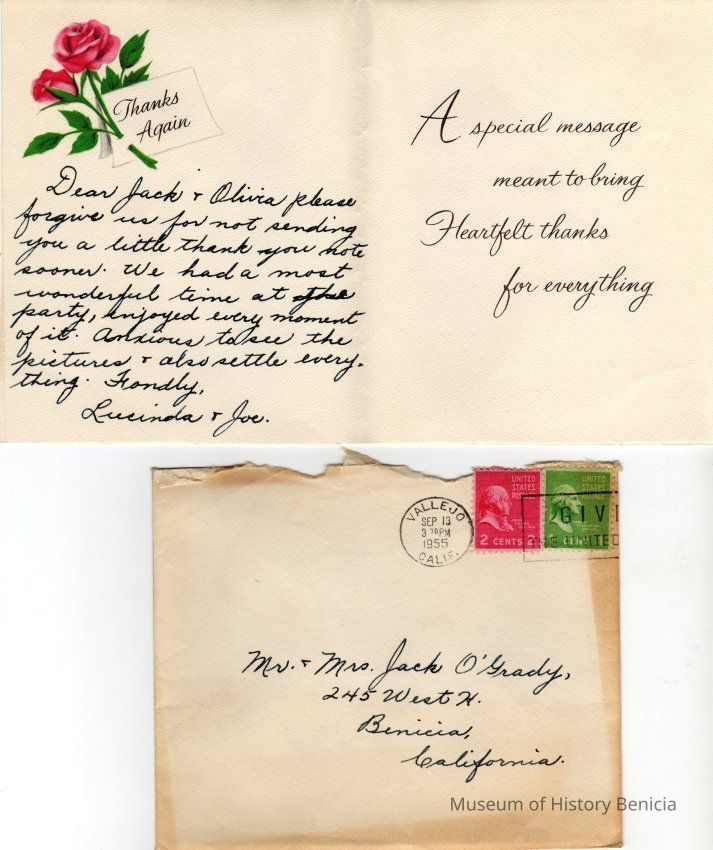 Thanks
Again
Dear Jack & Olivia please
forgive us for not sending
you a little thank you note
sooner. We had a most
wonderful time at the
party, enjoyed every moment
of it. Anxious to see the
pictures & also settle every-
thing. Fondly,
Lucinda & Joe.
A special message
meant to bring
Heartfelt thanks
for everything
VALLEJO
SEP 13
3 30 PM
1955
CALIF.
UNITED
STATES
POSTAGE
2 CENTS 2
UNITED
STATES
POSTAGE
CENT
GIV
THE UNITED
Mr. & Mrs. Jack O'Grady,
245 West H.
Benicia,
California.
Museum of History Benicia